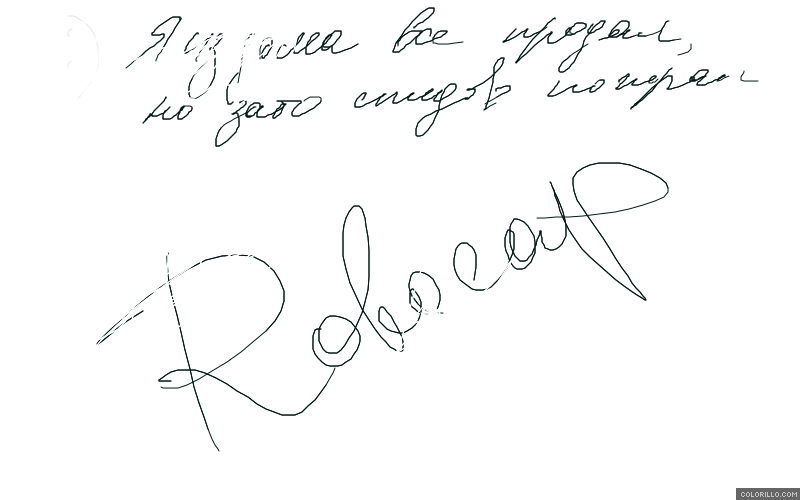 Я из дома все продал,
но зато спидов поиграл
Robocap
COLORILLO.COM